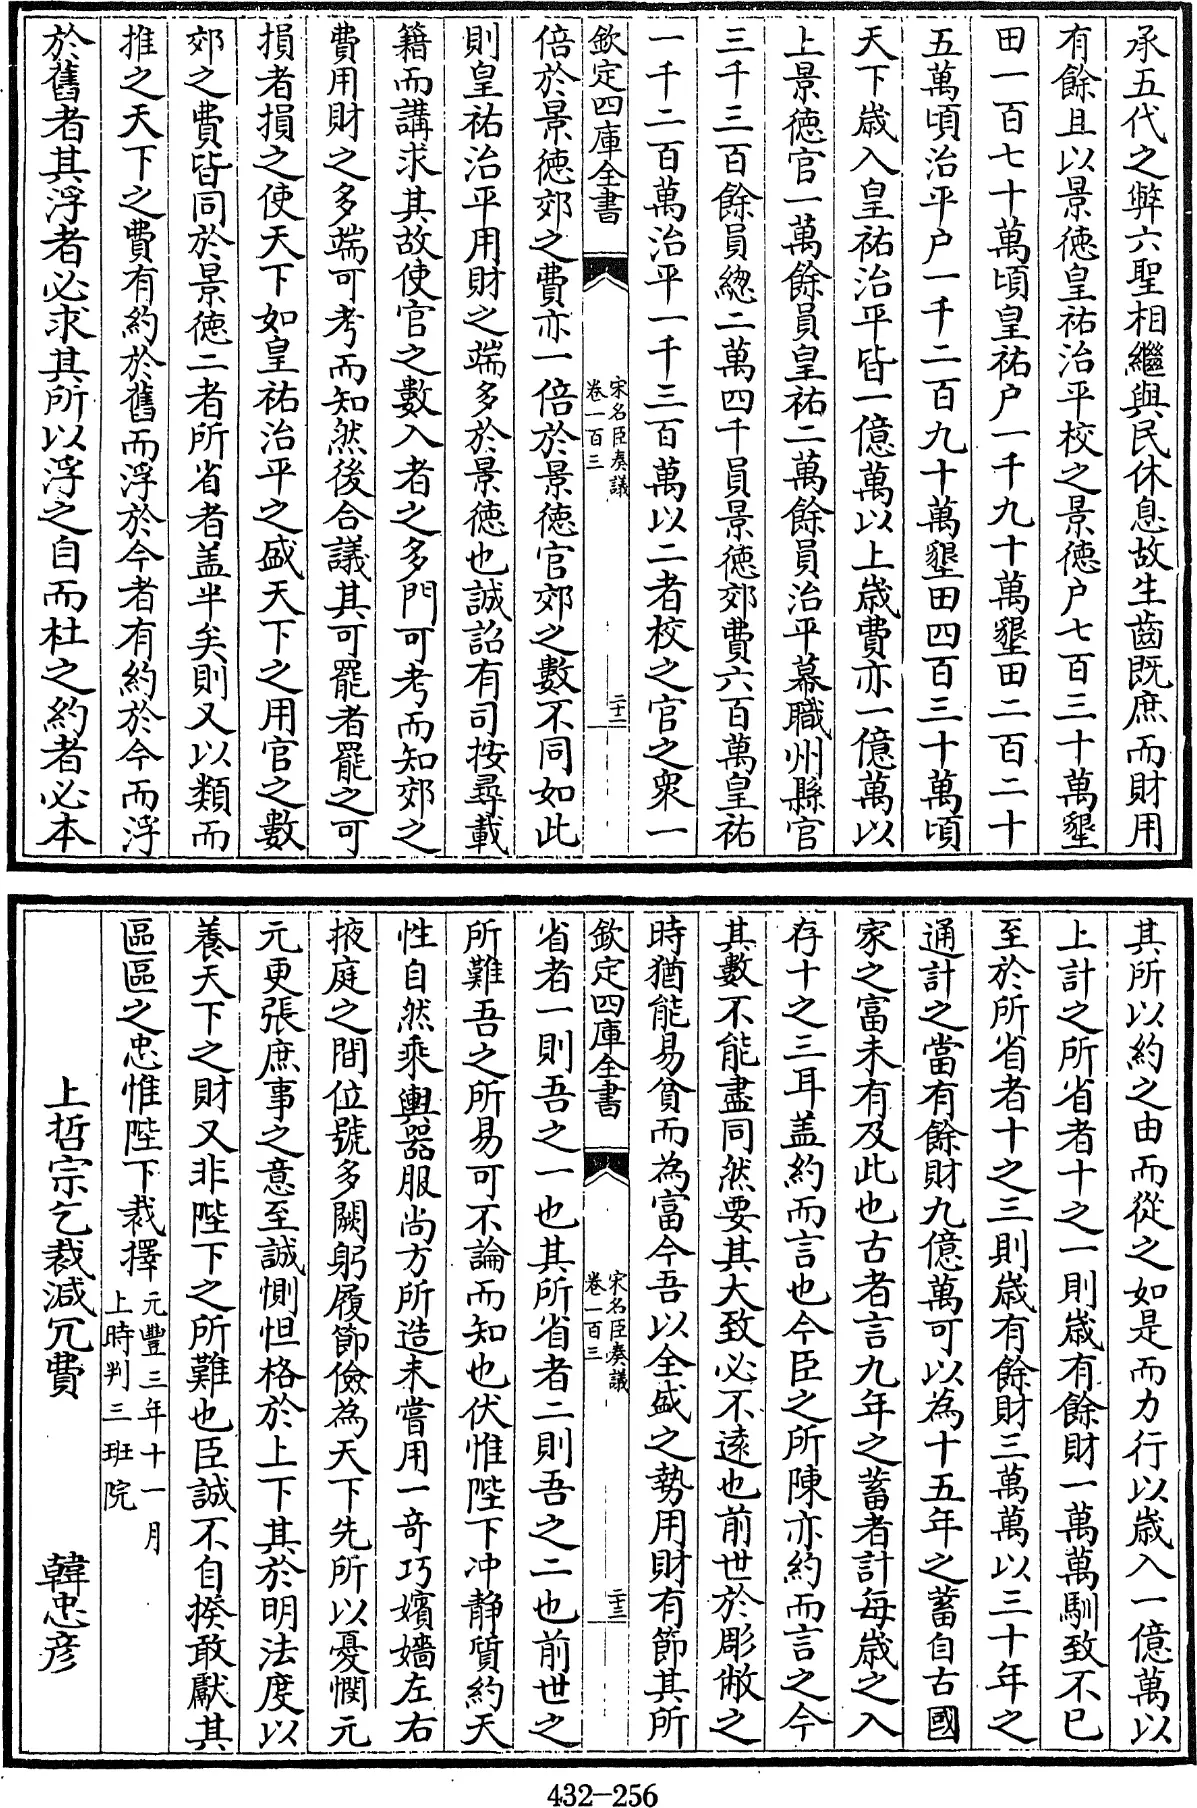 承五代之弊六聖相繼與民休息故生齒既庶而財用
有餘且以景徳皇祐治平校之景徳户七百三十萬墾
田一百七十萬頃皇祐户一千九十萬墾田二百二十
五萬頃治平户一千二百九十萬墾田四百三十萬頃
天下歳入皇祐治平皆一億萬以上歳費亦一億萬以
上景徳官一萬餘員皇祐二萬餘員治平幕職州縣官
三千三百餘員總二萬四千員景徳郊費六百萬皇祐
一千二百萬治平一千三百萬以二者校之官之衆一
欽定四庫全書
宋名臣奏議
卷一百三
二十二
倍於景徳郊之費亦一倍於景徳官郊之數不同如此
則皇祐治平用財之端多於景徳也誠詔有司按尋載
籍而講求其故使官之數入者之多門可考而知郊之
費用財之多端可考而知然後合議其可罷者罷之可
損者損之使天下如皇祐治平之盛天下之用官之數
郊之費皆同於景徳二者所省者盖半矣則又以類而
推之天下之費有約於舊而浮於今者有約於今而浮
於舊者其浮者必求其所以浮之自而杜之約者必本
其所以約之由而從之如是而力行以歳入一億萬以
上計之所省者十之一則歳有餘財一萬萬馴致不已
至於所省者十之三則歳有餘財三萬萬以三十年之
通計之當有餘財九億萬可以為十五年之蓄自古國
家之富未有及此也古者言九年之蓄者計每歳之入
存十之三耳盖約而言也今臣之所陳亦約而言之今
其數不能盡同然要其大致必不逺也前世於彫敝之
時猶能易貧而為富今吾以全盛之勢用財有節其所
欽定四庫全書
宋名臣奏議
卷一百三
二十三
省者一則吾之一也其所省者二則吾之二也前世之
所難吾之所易可不論而知也伏惟陛下冲静質約天
性自然乘輿器服尚方所造未嘗用一奇巧嬪嬙左右
掖庭之間位號多闕躬履節儉為天下先所以憂憫元
元更張庶事之意至誠惻怛格於上下其於明法度以
養天下之財又非陛下之所難也臣誠不自揆敢獻其
區區之忠惟陛下裁擇元豐三年十一月
上時判三班院
上哲宗乞裁減冗費 韓忠彦
432-256